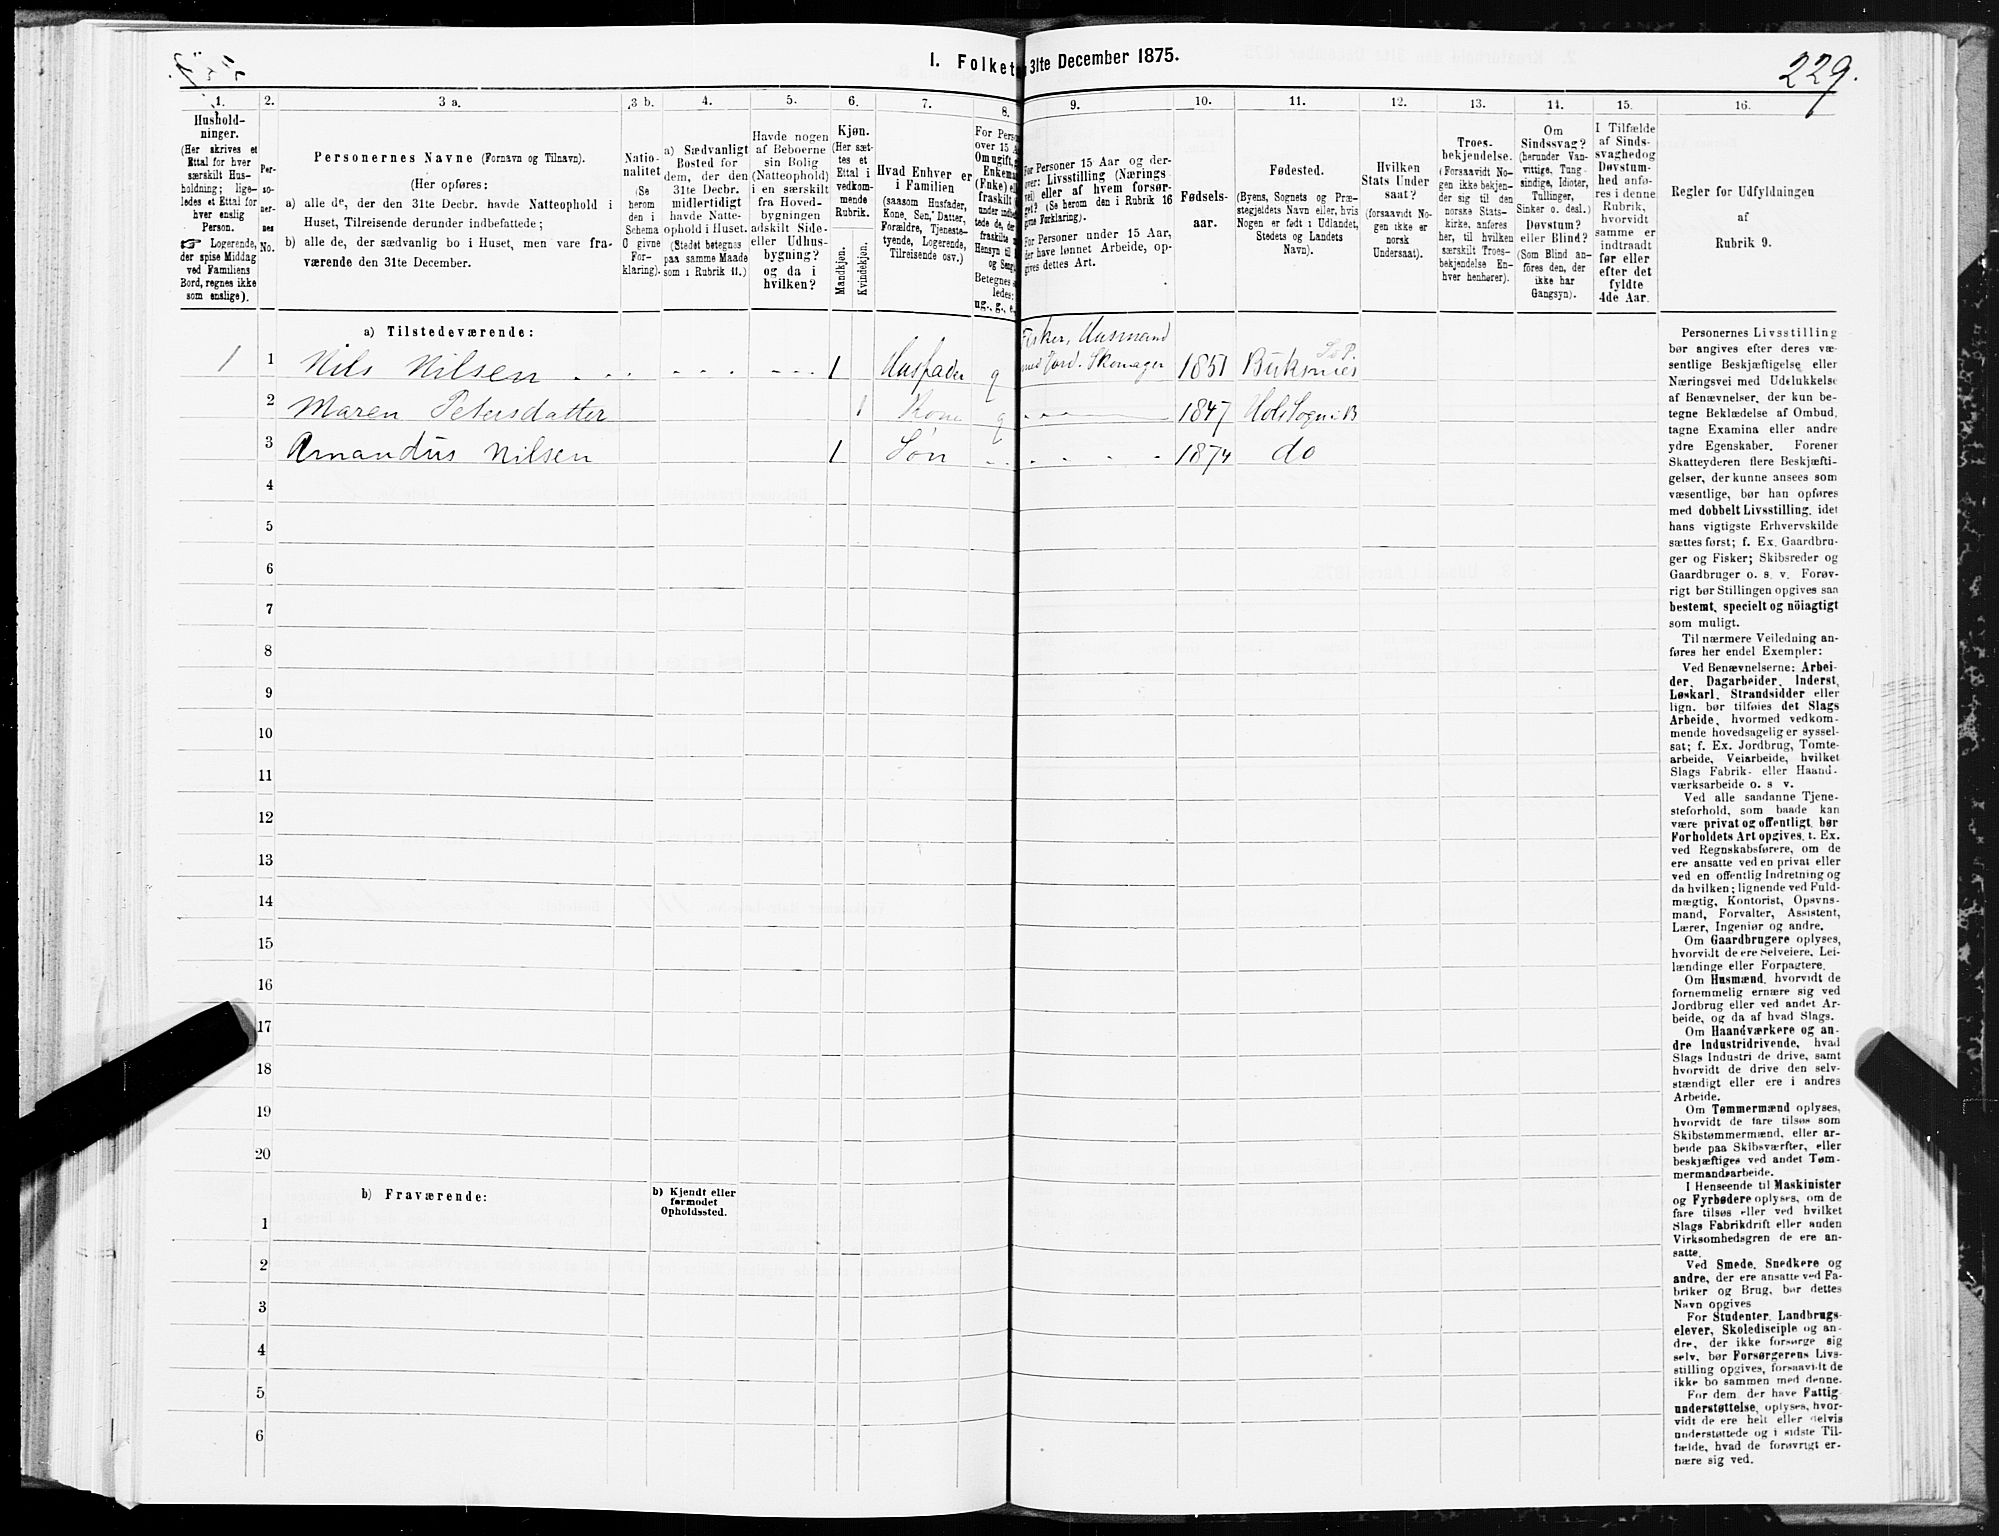 1. Folket
31te December 1875.
229.
1.
2.
3 a.
3 b.
4.
5.
6.
7.
8.
9.
10.
11.
12.
13.
14.
15.
16.
Hushold-
ninger.
(Her skrives et
Ettal for hver
særskilt Hus-
holdning; lige-
ledes et Ettal for
hver enslig
Person.
☞ Logerende,
der spise Middag
ved Familiens
Bord, regnes ikke
som enslige).
Per-
so-
ner-
nes
No.
Personernes Navne (Fornavn og Tilnavn).
(Her opføres:
a) alle de, der den 31te Decbr. havde Natteophold i
Huset, Tilreisende derunder indbefattede;
b) alle de, der sædvanlig bo i Huset, men vare fra-
værende den 31te December.
Natio-
nalitet
(Se
herom
den i
Schema
O givne
For-
klaring).
a) Sædvanligt
Bosted for
dem, der den
31te Decbr.
midlertidigt
havde Natte-
ophold i Huset.
(Stedet betegnes
paa samme Maade
som i Rubrik 11.)
Havde nogen
af Beboerne
sin Bolig
(Natteophold)
i en særskilt
fra Hoved-
bygningen
adskilt Side-
eller Udhus-
bygning?
og da i
hvilken?
Kjøn.
(Her sæt-
tes et
Ettal i
vedkom-
mende
Rubrik.
Mandkjøn.
Kvindekjøn.
Hvad Enhver er
i Familien
(saasom Husfader,
Kone, Søn, Datter,
Forældre, Tjeneste-
tyende, Logerende,
Tilreisende osv.)
For Pers
over 15 A
Om ugift, g
Enkema
(Enke) el
fraskilt
under indbe
tede de, der
fraskilte
Hensyn til
og Seng
Betegnes s
ledes:
ug., g., e.
For Personer 15 Aar og der-
over: Livsstilling (Nærings-
vei) eller af hvem forsør-
get? (Se herom den i Rubrik 16
givne Forklaring).
For Personer under 15 Aar,
der have lønnet Arbeide, op-
gives dettes Art.
Fødsels-
aar.
Fødested.
(Byens, Sognets og Præ-
stegjeldets Navn eller, hvis
Nogen er født i Udlandet,
Stedets og Landets
Navn).
Hvilken
Stats Under
saat?
(forsaavidt No-
gen ikke er
norsk
Undersaat).
Troes-
bekjendelse.
(Forsaavidt No-
gen ikke bekjen-
der sig til den
norske Stats-
kirke, anføres
her, til hvilken
særskilt Troes-
bekjendelse En-
hver henhører).
Om
Sindssvag?
(herunder Van-
vittige, Tung-
sindige, Idioter,
Tullinger,
Sinker o. desl.)
Døvstum?
eller Blind?
(Som Blind an-
føres den, der
ikke har
Gangsyn).
I Tilfælde
af Sinds-
svaghed og
Døvstum-
hed anfø-
res i denne
Rubrik,
hvorvidt
samme er
indtraadt
før eller
efter det
fyldte
4de Aar.
Regler for Udfyldningen
af
Rubrik 9.
a) Tilstedeværende:
1 1 Nils Nilsen 1 Husfader g Fisker, Husmand
med Jord. Skomager 1851 Buksnes S. P.
2 Maren Petersdatter 1 Kone g 1847 Hols Sogn i B
3 Amandus Nilsen 1 Søn 1874 do
4
5
6
7
8
9
10
11
12
13
14
15
16
17
18
19
20
b) Fraværende:
b) Kjendt eller
formodet
Opholdssted.
1
2
3
4
5
6
Personernes Livsstilling
bør angives efter deres væ-
sentlige Beskjæftigelse eller
Næringsvei med Udelukkelse
af Benævnelser, der kun be-
tegne Beklædelse af Ombud,
tagne Examina eller andre
ydre Egenskaber. Forener
Skatteyderen flere Beskjæfti-
gelser, der kunne ansees som
væsentlige, bør han opføres
med dobbelt Livsstilling, idet
hans vigtigste Erhvervskilde
sættes først; f. Ex. Gaardbru-
ger og Fisker; Skibsreder og
Gaardbruger o. s. v. Forøv-
rigt bør Stillingen opgives saa
bestemt, specielt og nöiagtigt
som muligt.
Til nærmere Veiledning an-
føres her endel Exempler:
Ved Benævnelserne: Arbei-
der, Dagarbeider, Inderst,
Løskarl, Strandsidder eller
lign. bør tilføies det Slags
Arbeide, hvormed vedkom-
mende hovedsagelig er syssel-
sat; f. Ex. Jordbrug, Tomte-
arbeide, Veiarbeide, hvilket
Slags Fabrik- eller Haand-
værksarbeide o. s v.
Ved alle saadanne Tjene-
steforhold, som baade kan
være privat og offentligt, bør
Forholdets Art opgives, t. Ex.
ved Regnskabsførere, om de
ere ansatte ved en privat eller
ved en offentlig Indretning og
da hvilken; lignende ved Fuld-
mægtig, Kontorist, Opsyns-
mand, Forvalter, Assistent,
Lærer, Ingeniør og andre.
Om Gaardbrugere oplyses,
hvorvidt de ere Selveiere, Lei-
lændinge eller Forpagtere.
Om Husmænd, hvorvidt de
fornemmelig ernære sig ved
Jordbrug eller ved andet Ar-
beide, og da af hvad Slags.
Om Haandværkere og an-
dre Industridrivende, hvad
Slags Industri de drive, samt
hvorvidt de drive den selv-
stændigt eller ere i andres
Arbeide.
Om Tømmermænd oplyses,
hvorvidt de fare tilsøs som
Skibstømmermænd, eller ar-
beide paa Skibsværfter, eller
beskjæftiges ved andet Tøm-
mermandsarbeide.
I Henseende til Maskinister
og Fyrbødere oplyses, om de
fare tilsøs eller ved hvilket
Slags Fabrikdrift eller anden
Virksomhedsgren de ere an-
satte.
Ved Smede, Snedkere og
andre, der ere ansatte ved Fa-
briker og Brug, bør dettes
Navn opgives
For Studenter, Landbrugs-
elever, Skoledisciple og an-
dre, der ikke forsørge sig
selv, bør Forsørgerens Livs-
stilling opgives, forsaavidt de
ikke bo sammen med denne.
For dem der have Fattig
understøttelse, oplyses, hvor-
vidt de ere helt eller delvis
understøttede og i sidste Til-
fælde, hvad de forøvrigt er-
nære sig ved.